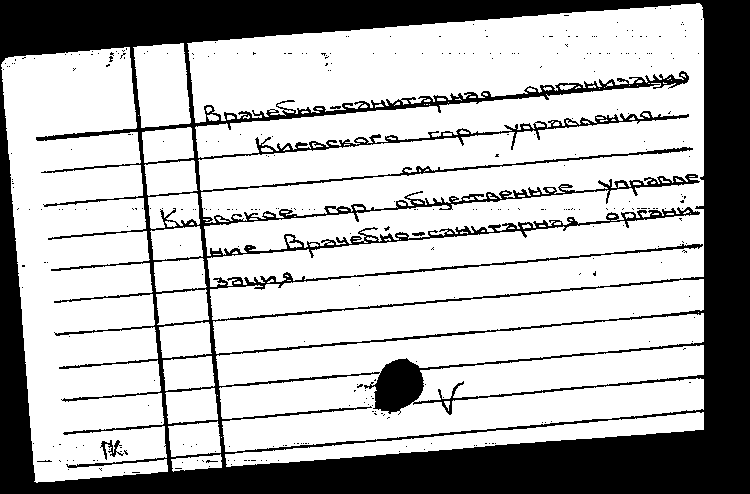 Врачебно-санитарная организация
Киевского гор. управления.
см.
Киевское гор. общественное управле-
ние Врачебно-санитарная органи-
зация.